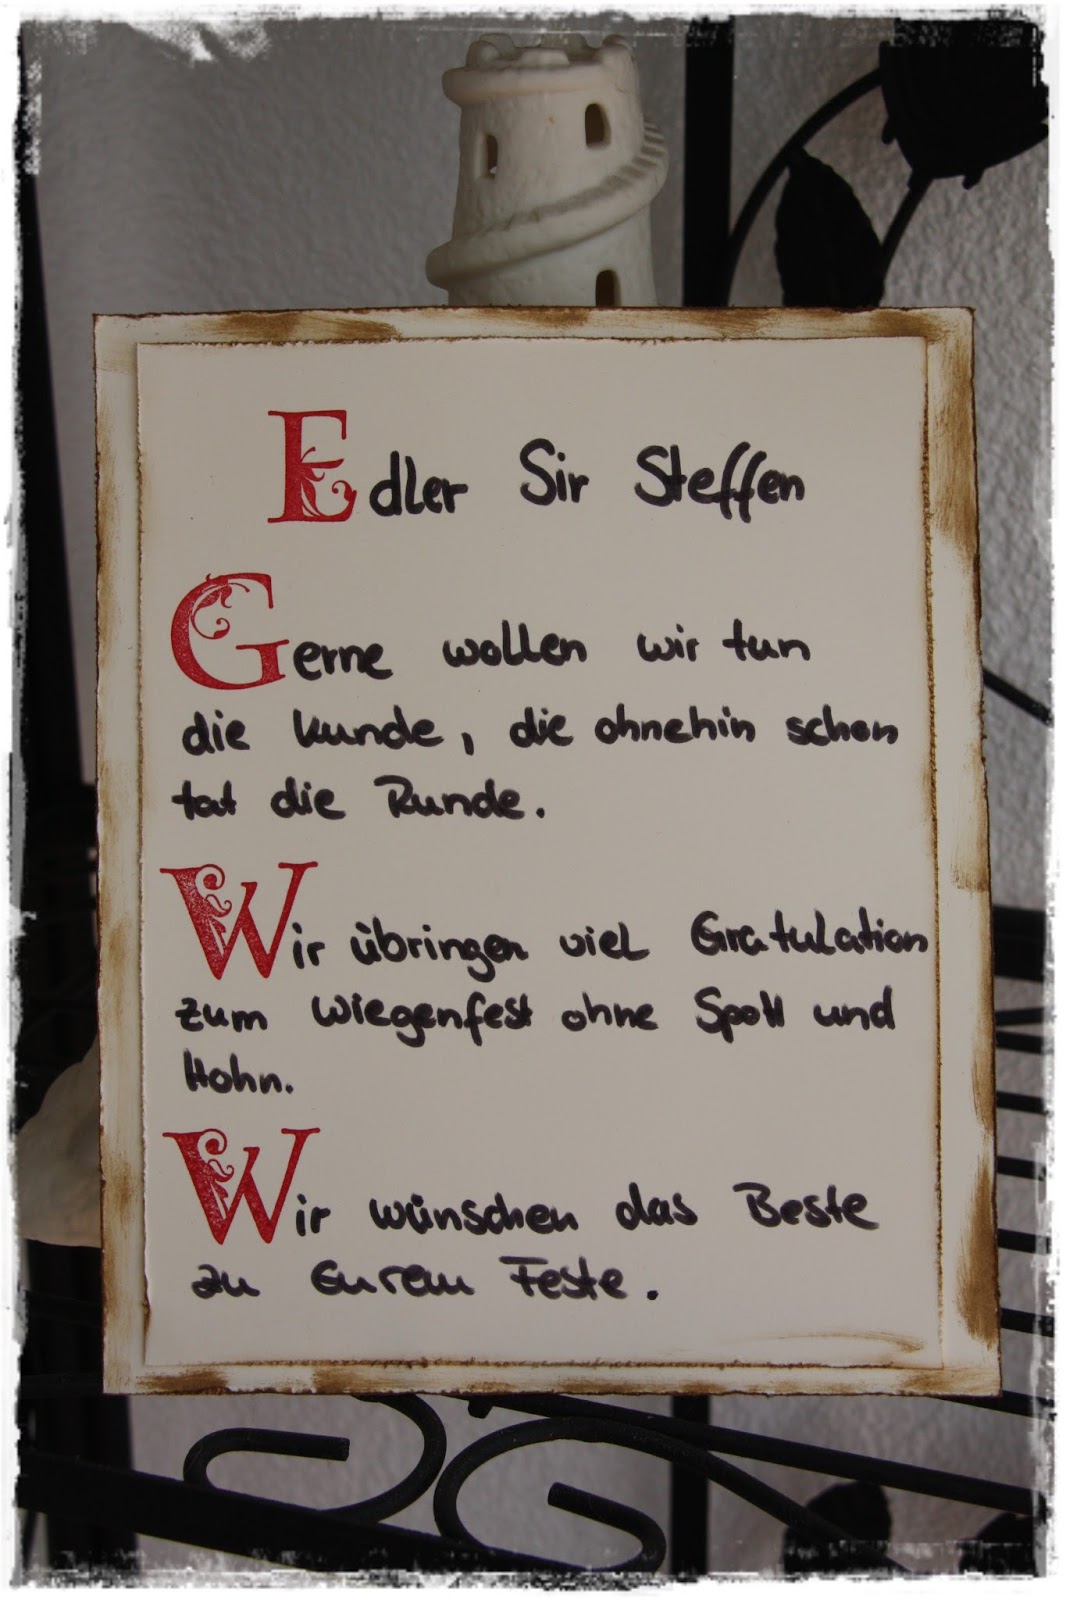 Edler Sir Steffen
Gerne wollen wir tun
die Kunde, die ohnehin schon
tat die Runde.
Wir übringen viel Gratulation
zum Wiegenfest ohne Spott und
Hohn.
Wir wünschen das Beste
zu Eurem Feste.